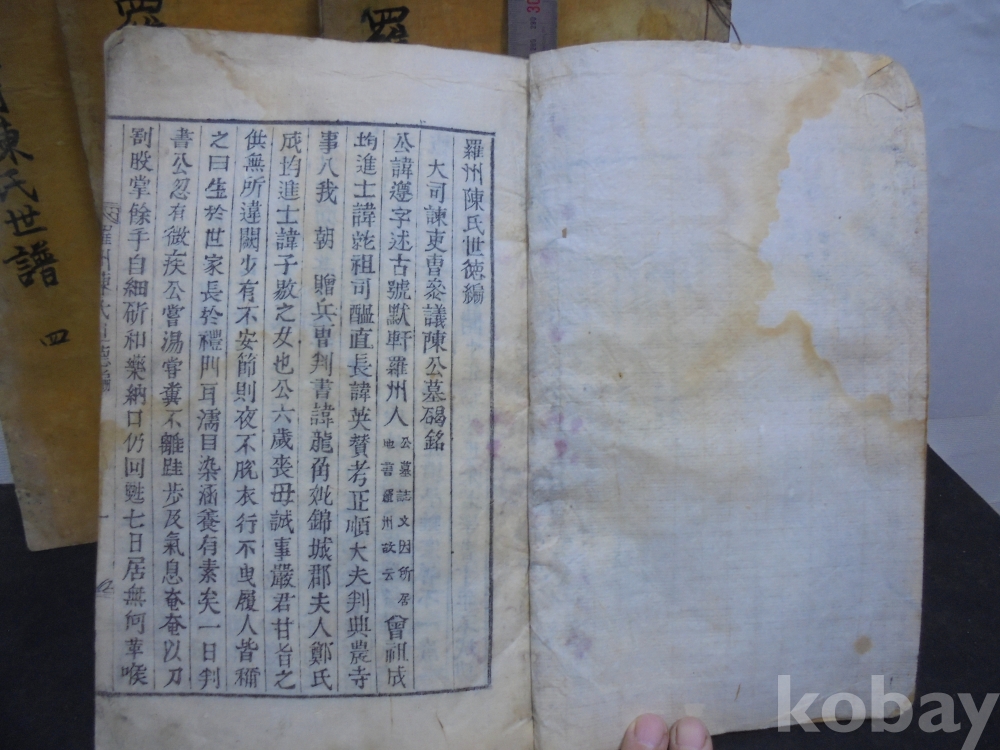 羅州陳氏世德編
大司諫吏曹參議陳公墓碣銘
公諱遵字述古號默軒羅州人 公墓誌文因所居 地書羅州故云 曾祖成
均進士諱乾祖司醞直長諱英贊考正順大夫判典農寺
事入我 朝 贈兵曹判書諱龍角妣錦城郡夫人鄭氏
成均進士諱子敷之女也公六歲喪母誠事嚴君甘旨之
供無所違闕少有不安節則夜不脫衣行不曳履人皆稱
之曰生於世家長於禮門耳濡目染涵養有素矣一日判
書公忽有微疾公嘗湯嘗糞不離跬步及氣息奄奄以刀
割股掌餘手自細斫和藥納口仍回甦七日居無何革喉
羅州陳氏世德編
一
羅
陳氏世譜
四
羅
30
kobay